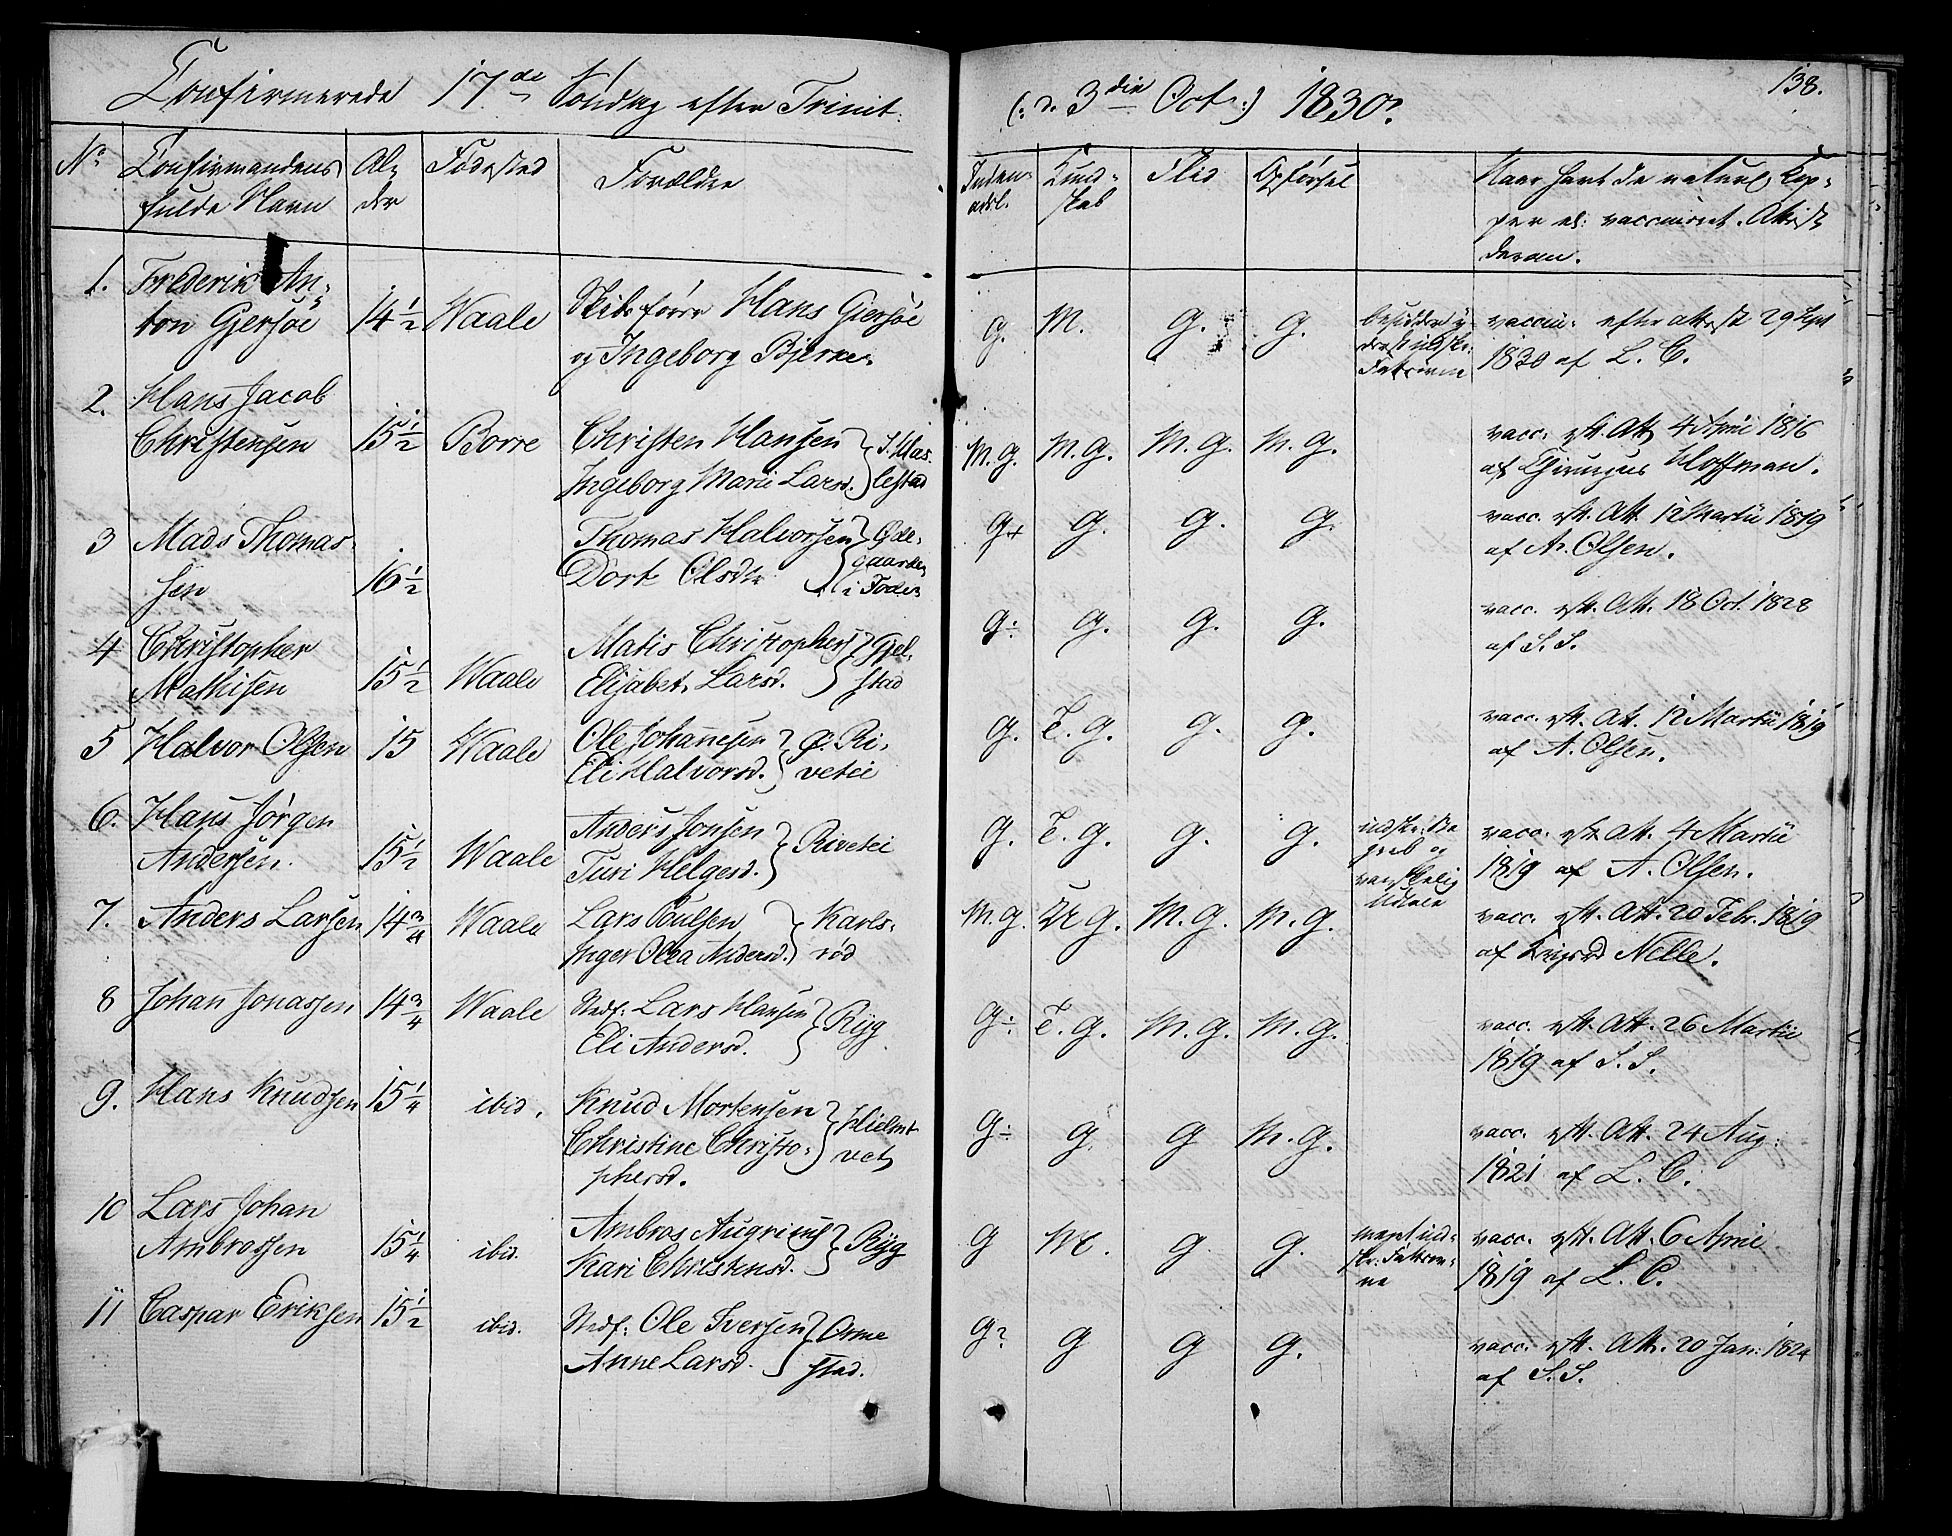 138.
Confirmerede 17de Søndag efter Trinit: (: d. 3die Oct:) 1830.
No Confirmandens fulde Navn Al- der Fødested Forældre Inden- adsl. Kund- skab Flid Opførsel Naar havt de naturl. Kop-
per el: vaccineret. Attest
derom.
1. Frederik An-
ton Gjersøe 14 1/2 Waale Skibsfører Hans Giersøe
og Ingeborg Bjerke. g. M. g. g. besidder y- vaccin: efter attest 29 Sept
1830 af L. C.
2. Hans Jacob
Christensen 15 1/2 Borre Christen Hansen
Ingeborg Marie Larsd. M. g. M. g. M. g. M. g. vacc. eft. Att. 4 April 1816
af Chirurgus Hoffman.
3 Mads Thomas-
sen 16 1/2 Thomas Halvorsen
Dort Olsdr Ødegaarden i Foden g+ g. g. g. vacc. eft. Att. 12 Martii 1819
af A. Olsen.
4 Christopher
Mathisen 15 1/2 Waale Matis Christophers
Elisabet Larsd. Gjel-
stad g÷ g. g. g. vacc. eft. Att. 18 Oct. 1828
af S. S.
5 Halvor Olsen 15 Waale Ole Johanesen
Eli Halvorsd. Ø. Ri-
vetei g. T. g. g. g. vacc. eft. Att. 12 Martii 1819
af A. Olsen.
6. Hans Jørgen
Andersen. 15 1/2 Waale Anders Jonsen
Turi Helgesd. Rivetei g. T. g. g. g. vacc. eft. Att. 4 Martii
1819 af A. Olsen.
7. Anders Larsen 14 3/4 Waale Lars Poulsen
Inger Olea Andersd. Karls-
rød M. g. M. g. M. g. vacc. eft. Att. 20 Febr. 1819
af Nelle.
8 Johan Jonassen 14 3/4 Waale Stedf: Lars Hansen
Eli Andersd. Ryg g÷ T. g. M. g. M. g. vacc. eft. Att. 26 Martii
1819 af S. S.
9. Hans Knudsen 15 1/4 ibid. Knud Mortensen
Christine Christo-
phersd. Hielmt-
vet g÷ g. g M. g. vacc. eft. Att. 24 Aug:
1821 af L. C.
10 Lars Johan
Ambrossen 15 1/4 ibid. Ambros Augrius
Kari Christensd. Ryg g M. g g. vacc. eft. Att. 6 April
1819 af L. C.
11 Caspar Eriksen 15 1/2 ibid. Stedf: Ole Iversen
Anne Larsd. Orme
stad. g? g g g. vacc. eft. Att. 20 Jan: 1824
af S. S.